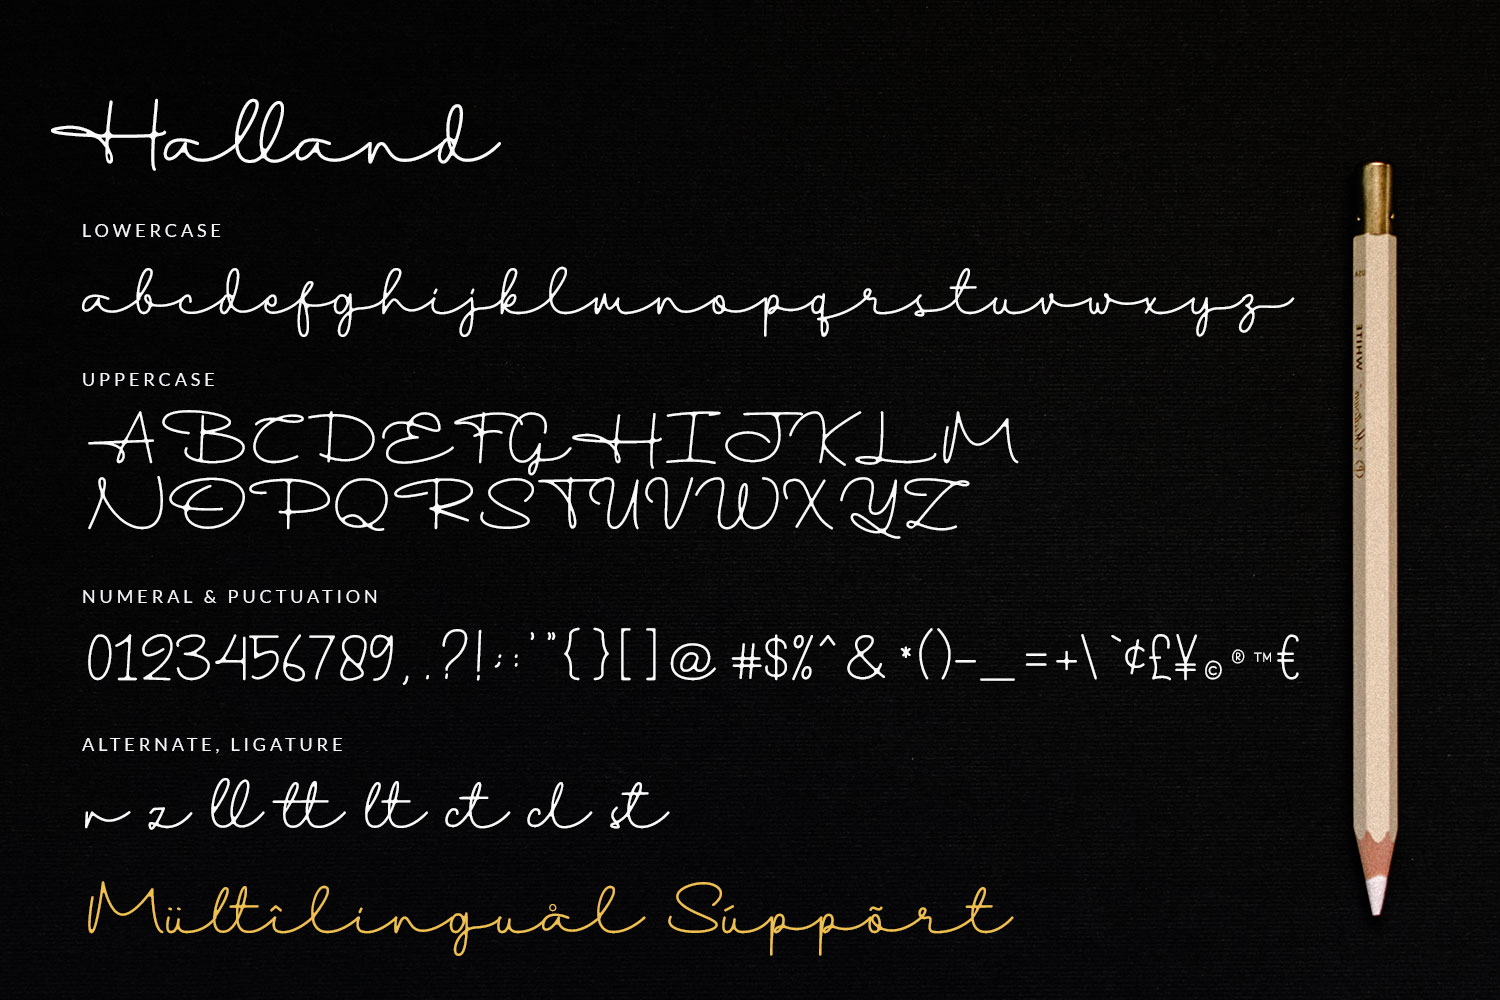 Halland
LOWERCASE
abcdefghijklmnopqrstuvwxyz
UPPERCASE
ABCDEFGHIJKLM
NOPQRSTUVWXYZ
NUMERAL & PUCTUATION
0123456789,.?!;:'"{}[]@ #$%^&*()-_=+\`¢£¥©®™€
ALTERNATE, LIGATURE
r z ll tt lt ct cl st
Mültîlinguål Súppõrt
WHITE